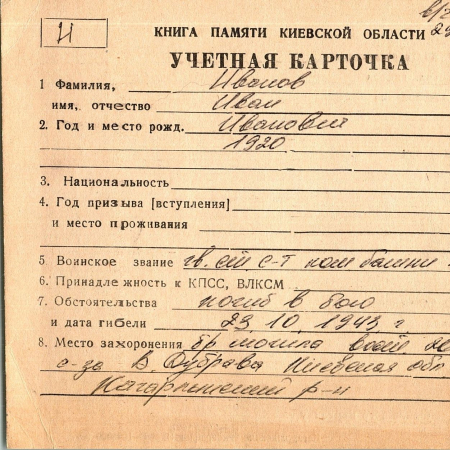 И
КНИГА ПАМЯТИ КИЕВСКОЙ ОБЛАСТИ
УЧЕТНАЯ КАРТОЧКА
1 Фамилия, Иванов
имя, отчество Иван
2. Год и место рожд. Иванович
1920
3. Национальность
4. Год призыва [вступления]
и место проживания
5 Воинское звание гв. ст. с-т ком башни
6. Принадлежность к КПСС, ВЛКСМ
7. Обстоятельства погиб в бою
и дата гибели 23.10.1943 г.
8. Место захоронения бр могила
с-за В Дубрава Киевская обл
Кагарлыкский р-н